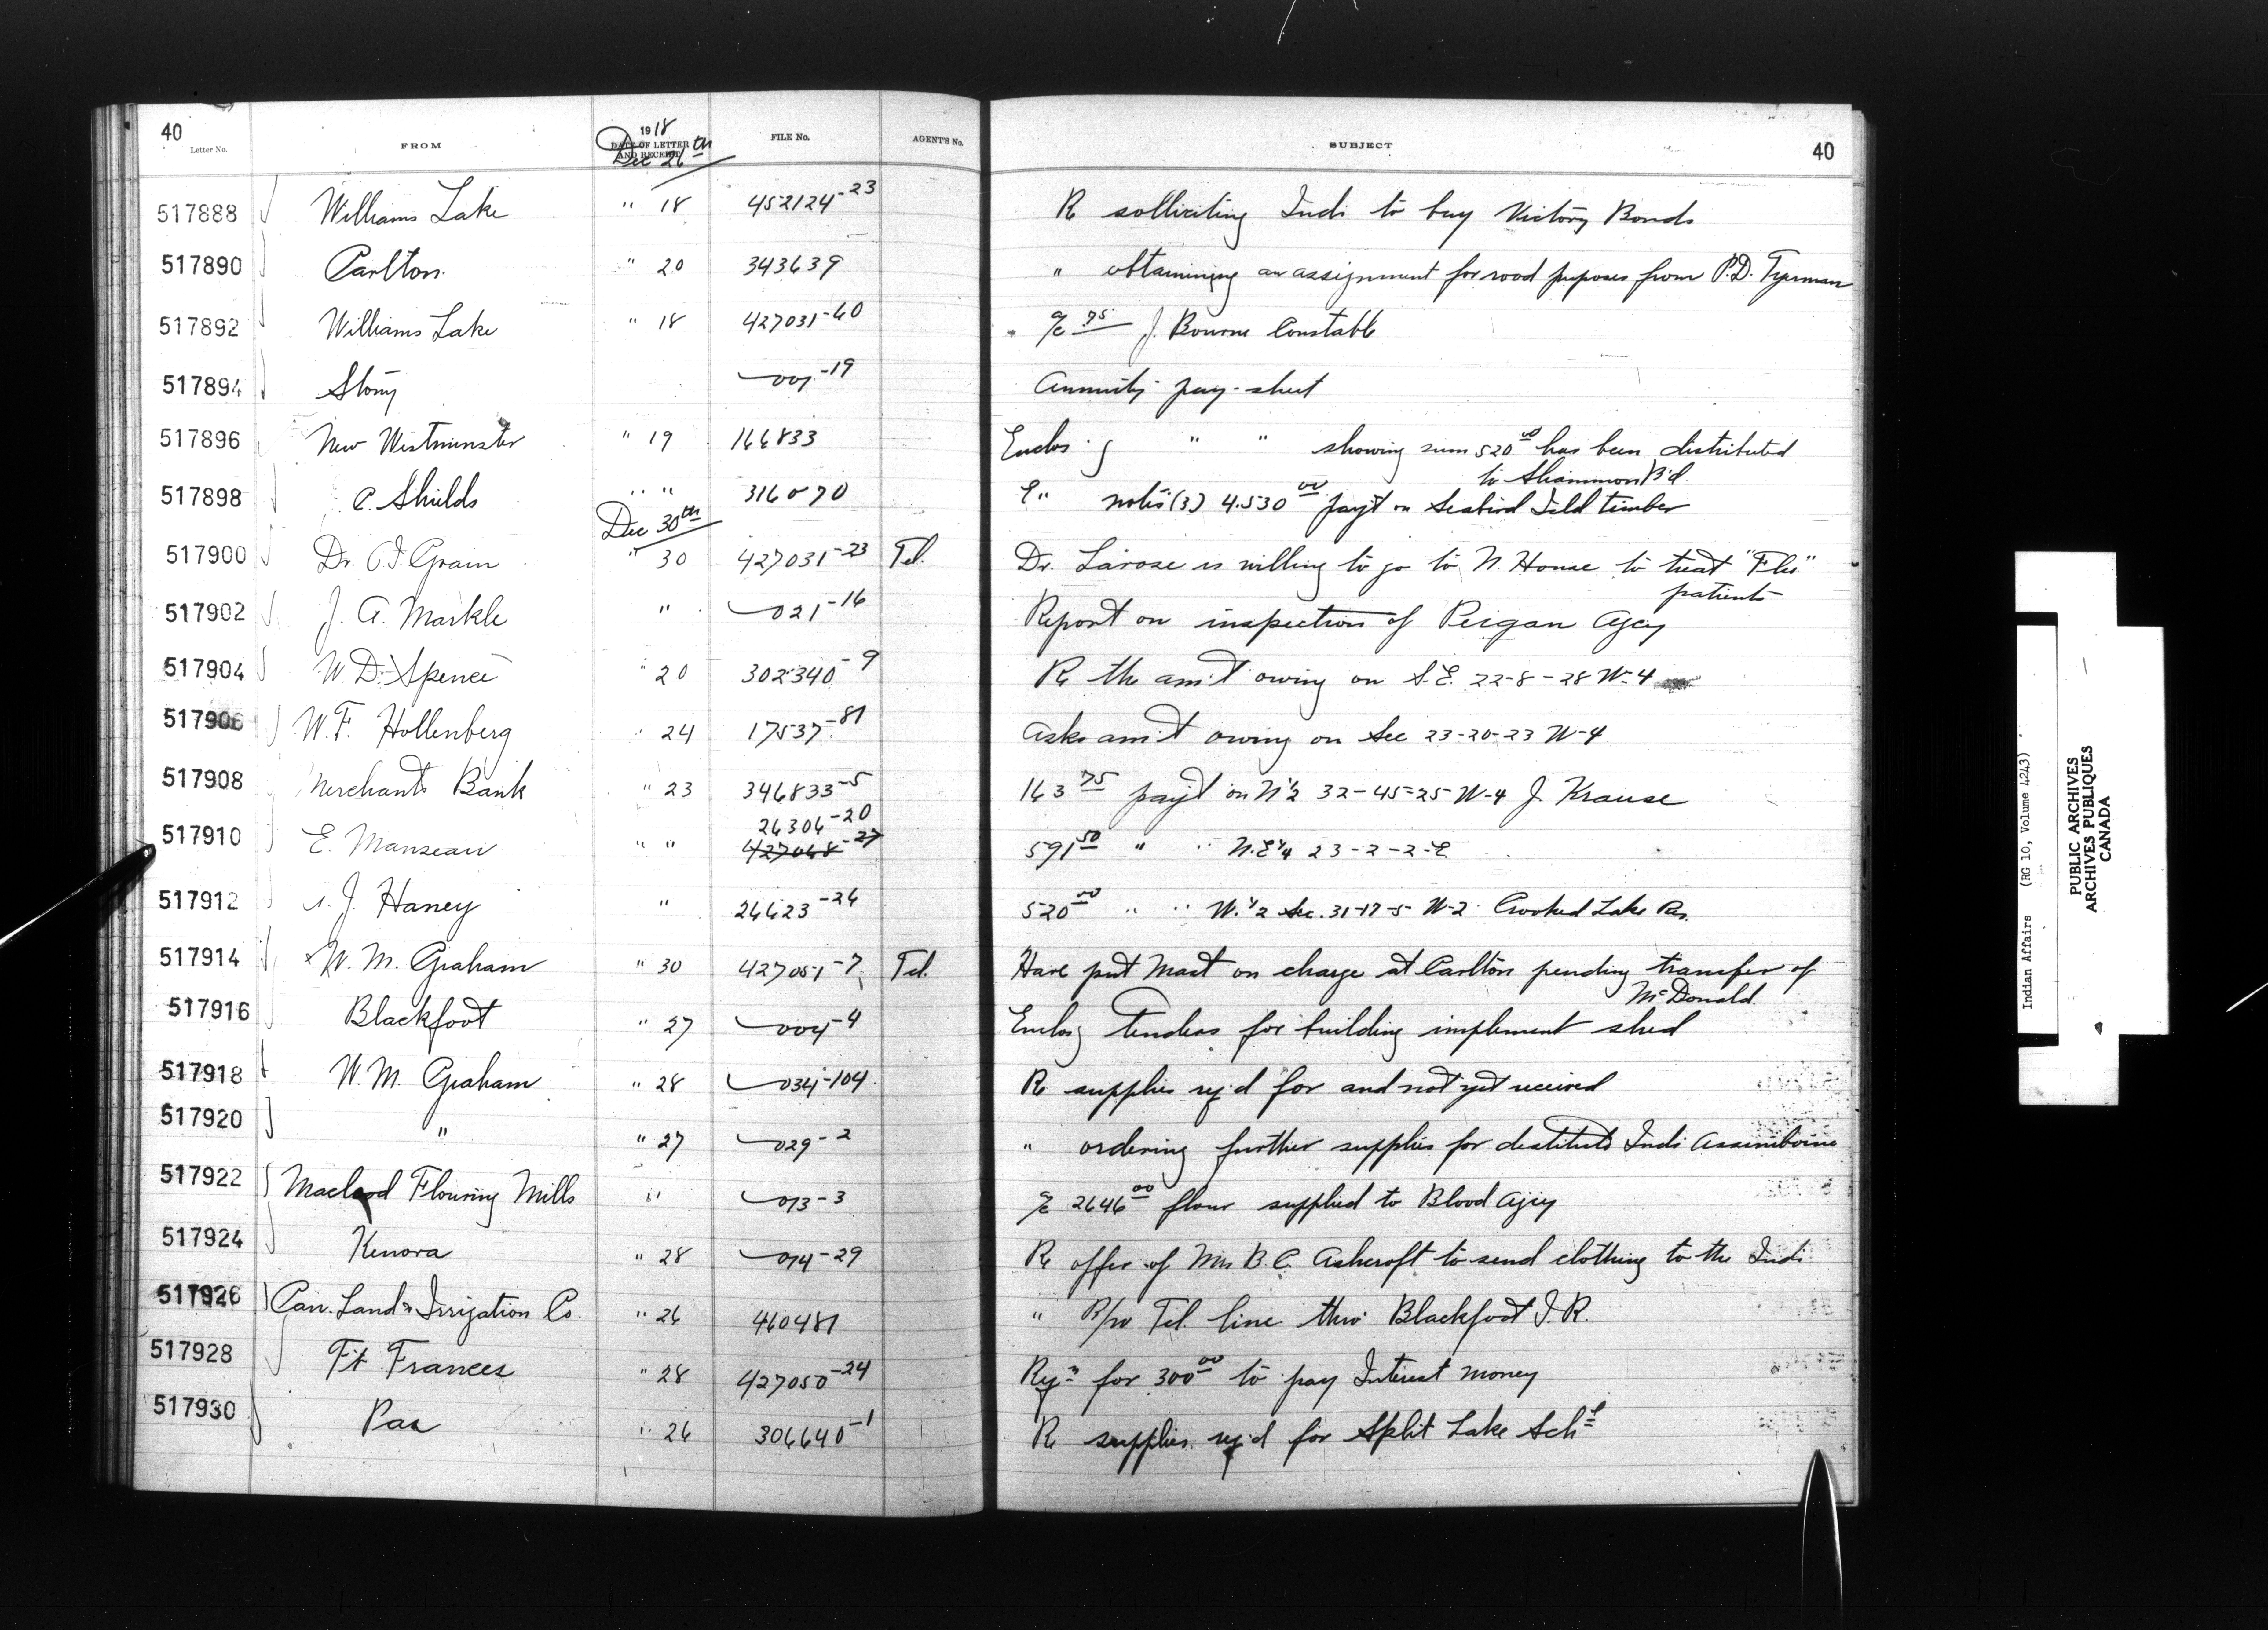 40
Letter No. FROM 1918 DATE OF LETTER AND RECEIPT FILE No. AGENT'S No. SUBJECT 40
Dec 26th
517888 Williams Lake " 18 452124-23 Re solliciting Inds to buy Victory Bonds
517890 Carlton " 20 343639 " obtaining an assignment for road purposes from P.D. Tyerman
517892 Williams Lake " 18 427031-60 a/c 75 J. Bourne Constable
517894 Stony 007-19 Annuity pay-sheet
517896 New Westminster " 19 166833 Enclos g " " showing sum 520 00 has been distributed
to Sliammon B'd.
517898 C. Shields " " 316070 E " notes (3) 4.530 00 pay't on Seabird Isld timber
Dec 30th
517900 Dr. O.I. Grain " 30 427031-23 Tel. Dr. Larose is willing to go to N. House to treat "Flu"
patients
517902 J. A. Markle " 021-16 Report on inspection of Peigan Agcy
517904 W. D. Spence " 20 302340-9 Re the am't owing on S.E. 22-8-28 W-4
517906 W. F. Hollenberg " 24 17537-81 Asks am't owing on Sec 23-20-23 W-4
517908 Merchants Bank " 23 346833-5 163 75 pay't on N 1/2 32-45-25 W-4 J. Krause
26306-20
517910 E. Manseau " " 427048-27 591 50 " " N.E 1/4 23-2-2-E
517912 J. Haney " 26623-26 520 00 " " W. 1/2 Sec. 31-17-5 W-2 Crooked Lake Res.
517914 W. M. Graham " 30 427051-7 Tel. Have put Mast on charge at Carlton pending transfer of
McDonald
517916 Blackfoot " 27 004-4 Enclosg tenders for building implement shed
517918 W. M. Graham " 28 034-104 Re supplies rq'd for and not yet received
517920 " " 27 029-2 " ordering further supplies for destitute Inds Assiniboine
517922 Macleod Flouring Mills " 013-3 a/c 2646 00 flour supplied to Blood Agcy
517924 Kenora " 28 014-29 Re offer of Mrs B. C. Ashcroft to send clothing to the Inds
517926 Can. Land & Irrigation Co. " 26 460481 " R/w Tel line thro' Blackfoot I.R.
517928 Ft Frances " 28 427050-24 Reqn for 300 00 to pay Interest money
517930 Pas " 26 306640-1 Re supplies rq'd for Split Lake Schl
Indian Affairs (RG 10, Volume 4243)
PUBLIC ARCHIVES
ARCHIVES PUBLIQUES
CANADA